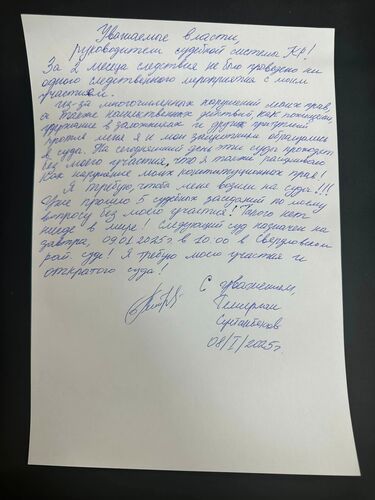 Уважаемые власти,
руководители судебной системы КР!
За 2 месяца следствия не было проведено ни
одного следственного мероприятия с моим
участием.
Из-за многочисленных нарушений моих прав,
а также насильственных действий, как похищение,
удержание в заложниках и других
против меня я и мои защитники обращались
в суда. На сегодняшний день эти суды проходят
без моего участия, что я также расцениваю
как нарушение моих конституционных прав!
Я требую, чтоб меня возили на суда!!!
Уже прошло 5 судебных заседаний по моему
вопросу без моего участия! Такого нет
нигде в мире! Следующий суд назначен на
завтра, 09.01.2025г в 10.00 в Свердловском
рай. суде! Я требую моего участия и
открытого суда!
С уважением,
Темирлан
Султанбеков
08/I/2025г.